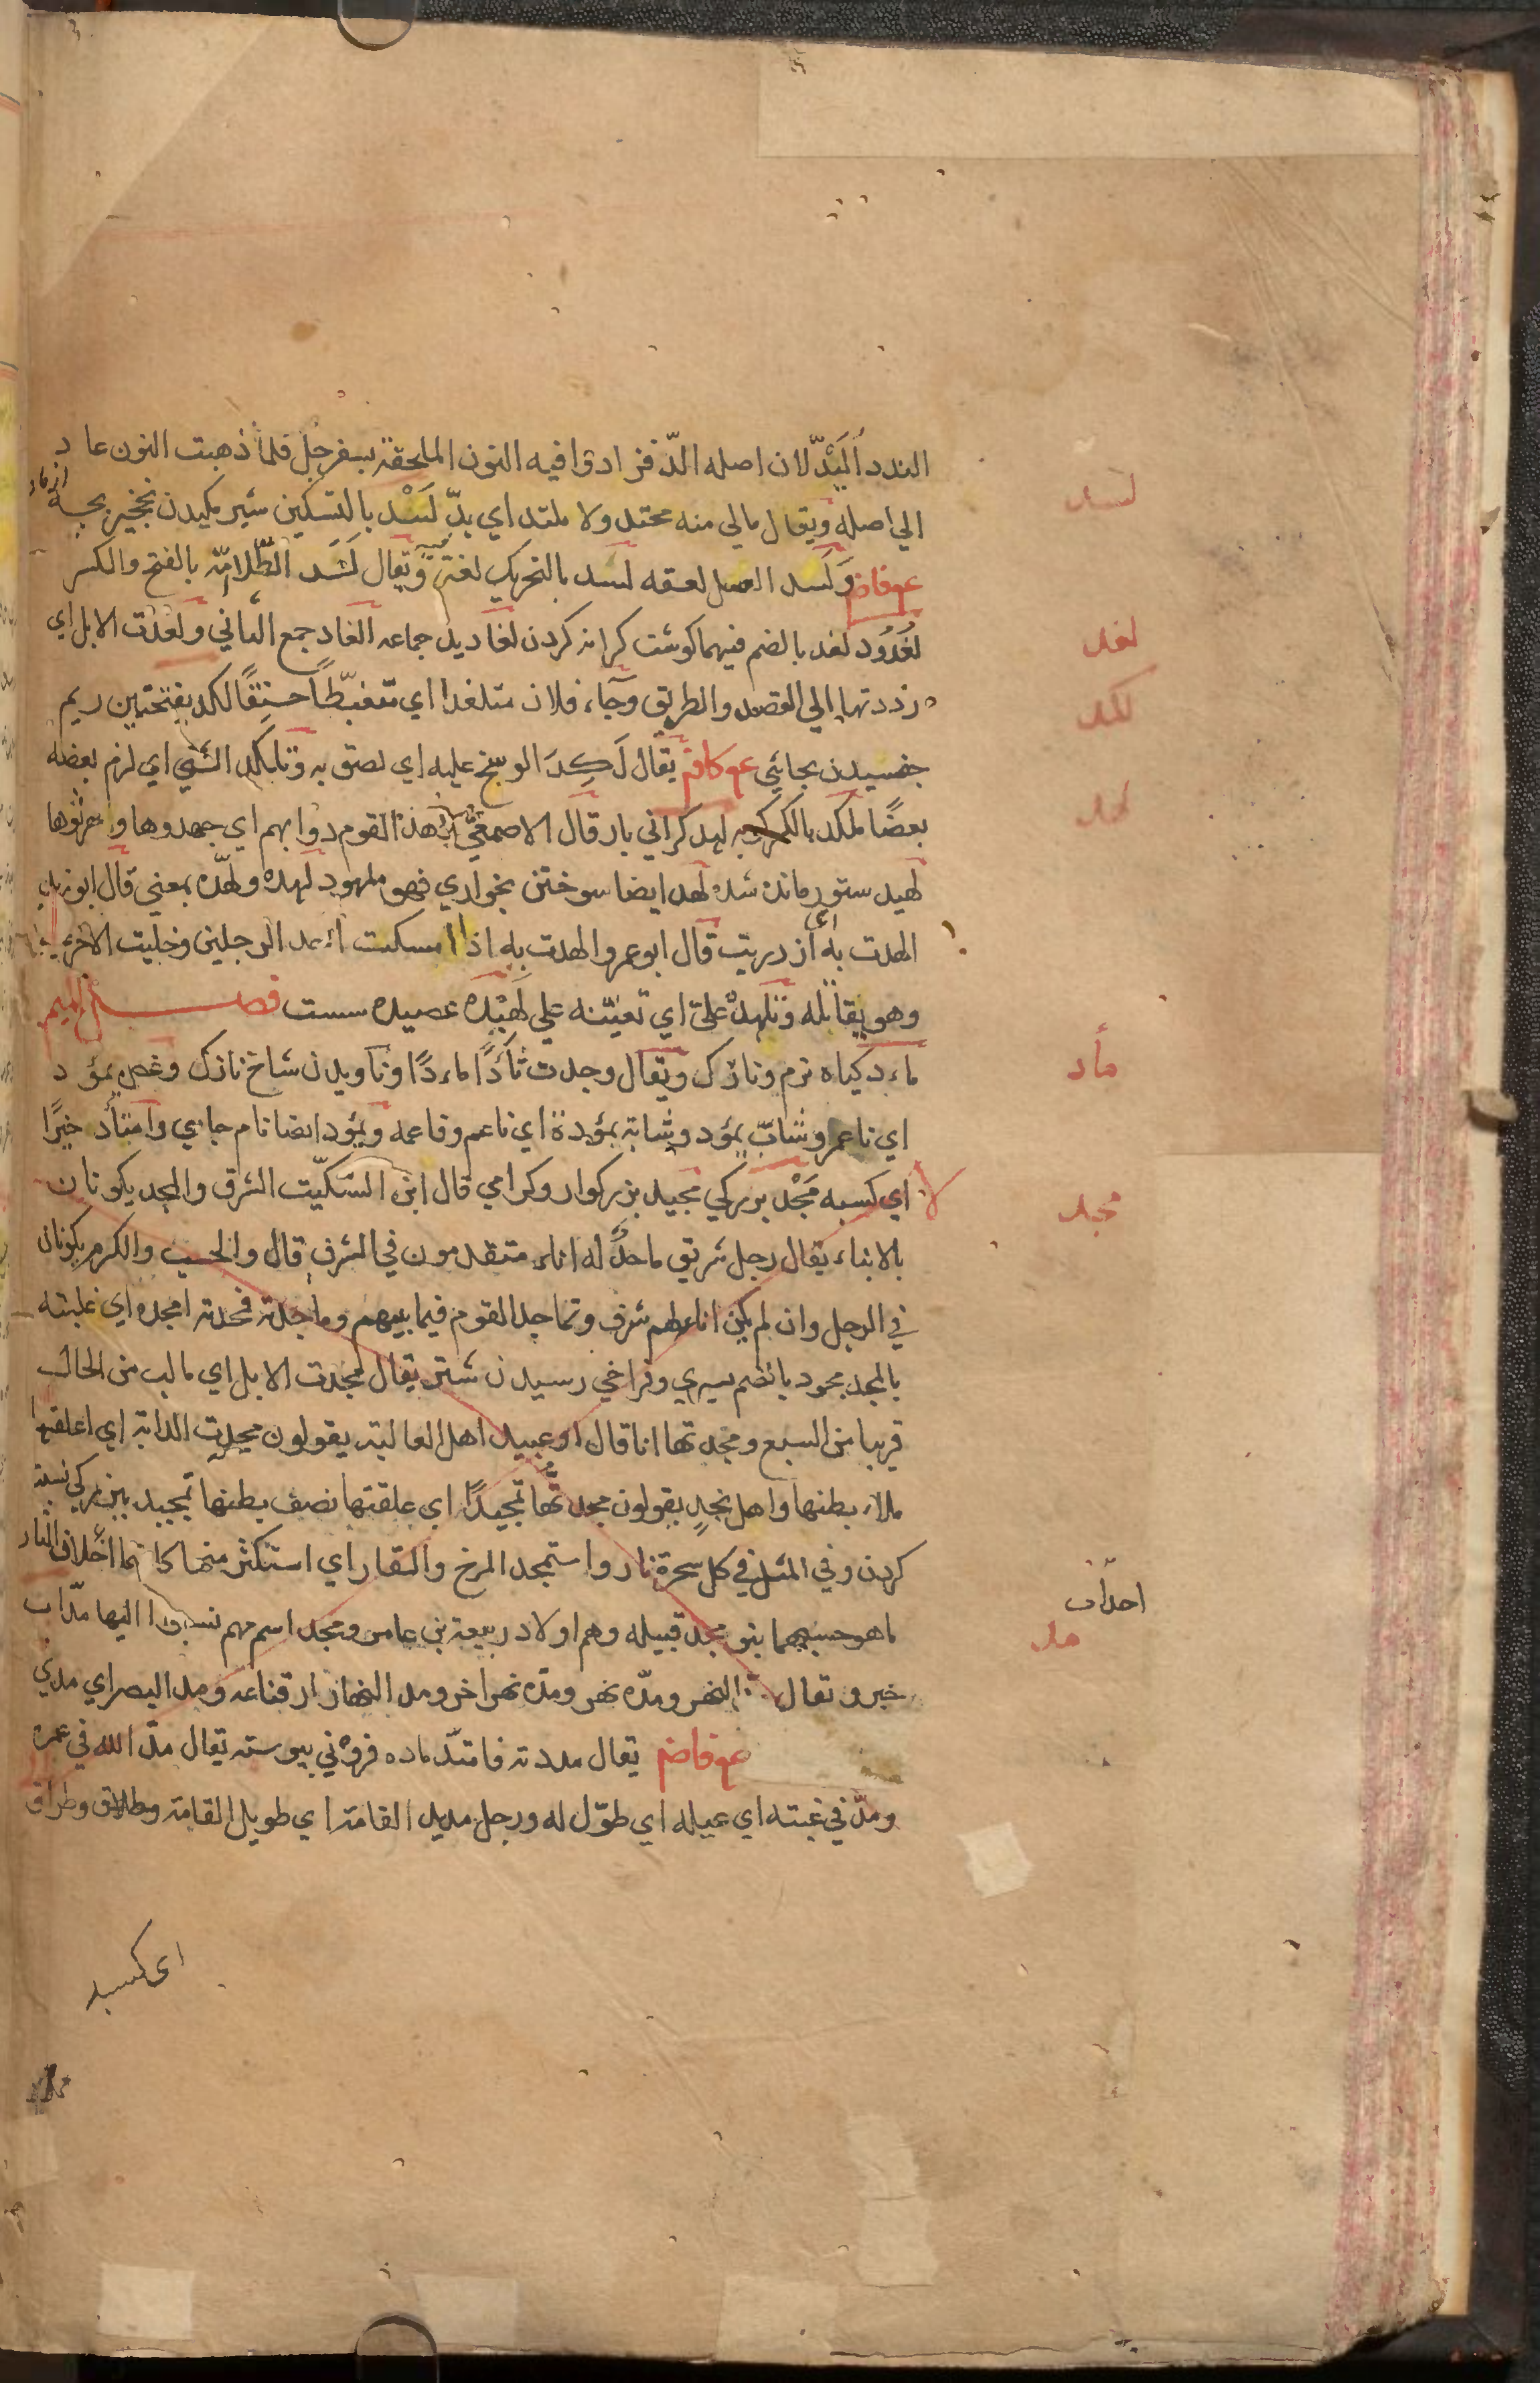 الندد أُلَيْدّ لان اصله الدّ فزادوا فيه النون الملحقة بسفرجل فلما ذهبت النون عاد
الي اصله ويقال مالي منه محتد ولا ملتد اي بدّ لَسْد بالتسكين شير مكيدن بچه
لسد
ع وفاض وَلَسد العسل لعقه لسد بالتحريك لغة ويقال لَسَد الطّلا امّه بالفتح والكسر
لُغدُود لغد بالضم فيهما كوشت كرانه كردن لغاديد جماعه الغاد جمع الثاني ولغدت الابل اي
لغد
رددتها الي القصد والطريق وجاء فلان متلغدا اي متغيّظًا حنِقًا لكد بفتحتين ريم
لكد
جفسيدن بجائي ع كاف يقال لَكِدَ الوسخ عليه اي لصق به وتلكد الشي اي لزم بعضه
بعضًا ملكد بالكسر لهد كراني بار قال الاصمعي لهد القوم دوابهم اي جهدوها و احرثوها
لهد
لهيد ستور مانده شده لهد ايضا سوختن بخواري فهو ملهود لهده ولهّده بمعني قال ابو زيد
الهدت به اي ازدريت قال ابو عمرو الهدت به اذا امسكت احد الرجلين وخليت الاخر
وهو يقاتله علي اي تعينه علي لَهيْده عصيده سست فصل الميم
ماءد كياه نرم ونازك ويقال وجدت ثأدًا ماءدًا وناويدن شاخ نازك وغصن يمؤد
مأد
اي ناعم وشابّ يمؤد وشابة يمؤدة اي ناعم وناعمه ويمؤد ايضا نام جاي وامتأد خيرًا
لا
اي كسبه مَجْد بزركي مجيد بزركوار وكرامي قال ابن السّكّيت الشرف والمجد يكونان
مجد
بالاباء يقال رجل شريف ماجد له اباء متقدمون في الشرف قال والحسب والكرم يكونان
في الرجل وان لم يكن اباءلهم شرف وتماجد القوم فيما بينهم وماجدته فمجدته امجده اي غلبته
بالمجد مجود بالضم سيري وفراخي رسيدن شتر يقال مجدت الابل اي مالب من الحال
قريبا من السبع ومجدتها انا قال ابو عبيد اهل العالية يقولون مجدت الدابة اي اعلفتها
ملاء بطنها واهل نجدٍ يقولون مجدتُّها تمجيدًا اي علفتها نصف بطنها تمجيد ببزركي نسبة
كردن وفي المثل في كل شجرة نار واستمجد المرخ والعفار اي استكثر منها كانهما اخذا من النار
ما هو حسبهما بنو مجد قبيله وهم اولاد ربيعة بن عامر ومجد اسم مهم نسبوا اليها مدّاب
احداب
مد
خير وتعال النهر ومدّه نهر ومدّه نهر اخر ومد النهار ارتفاعه ومد البصر اي مدي
ع وفاض يقال مددته فامتدّ ماده فزوني پيوسته يقال مدّ الله في عمره
ومدّ في غيته اي عيله اي طوّل له ورجل مديد القامة اي طويل القامة وطلاق وطراف
اى كسبه